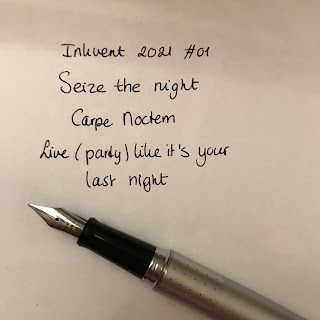 Inkvent 2021 #01
Seize the night
Carpe Noctem
Live (party) like it's your
last night